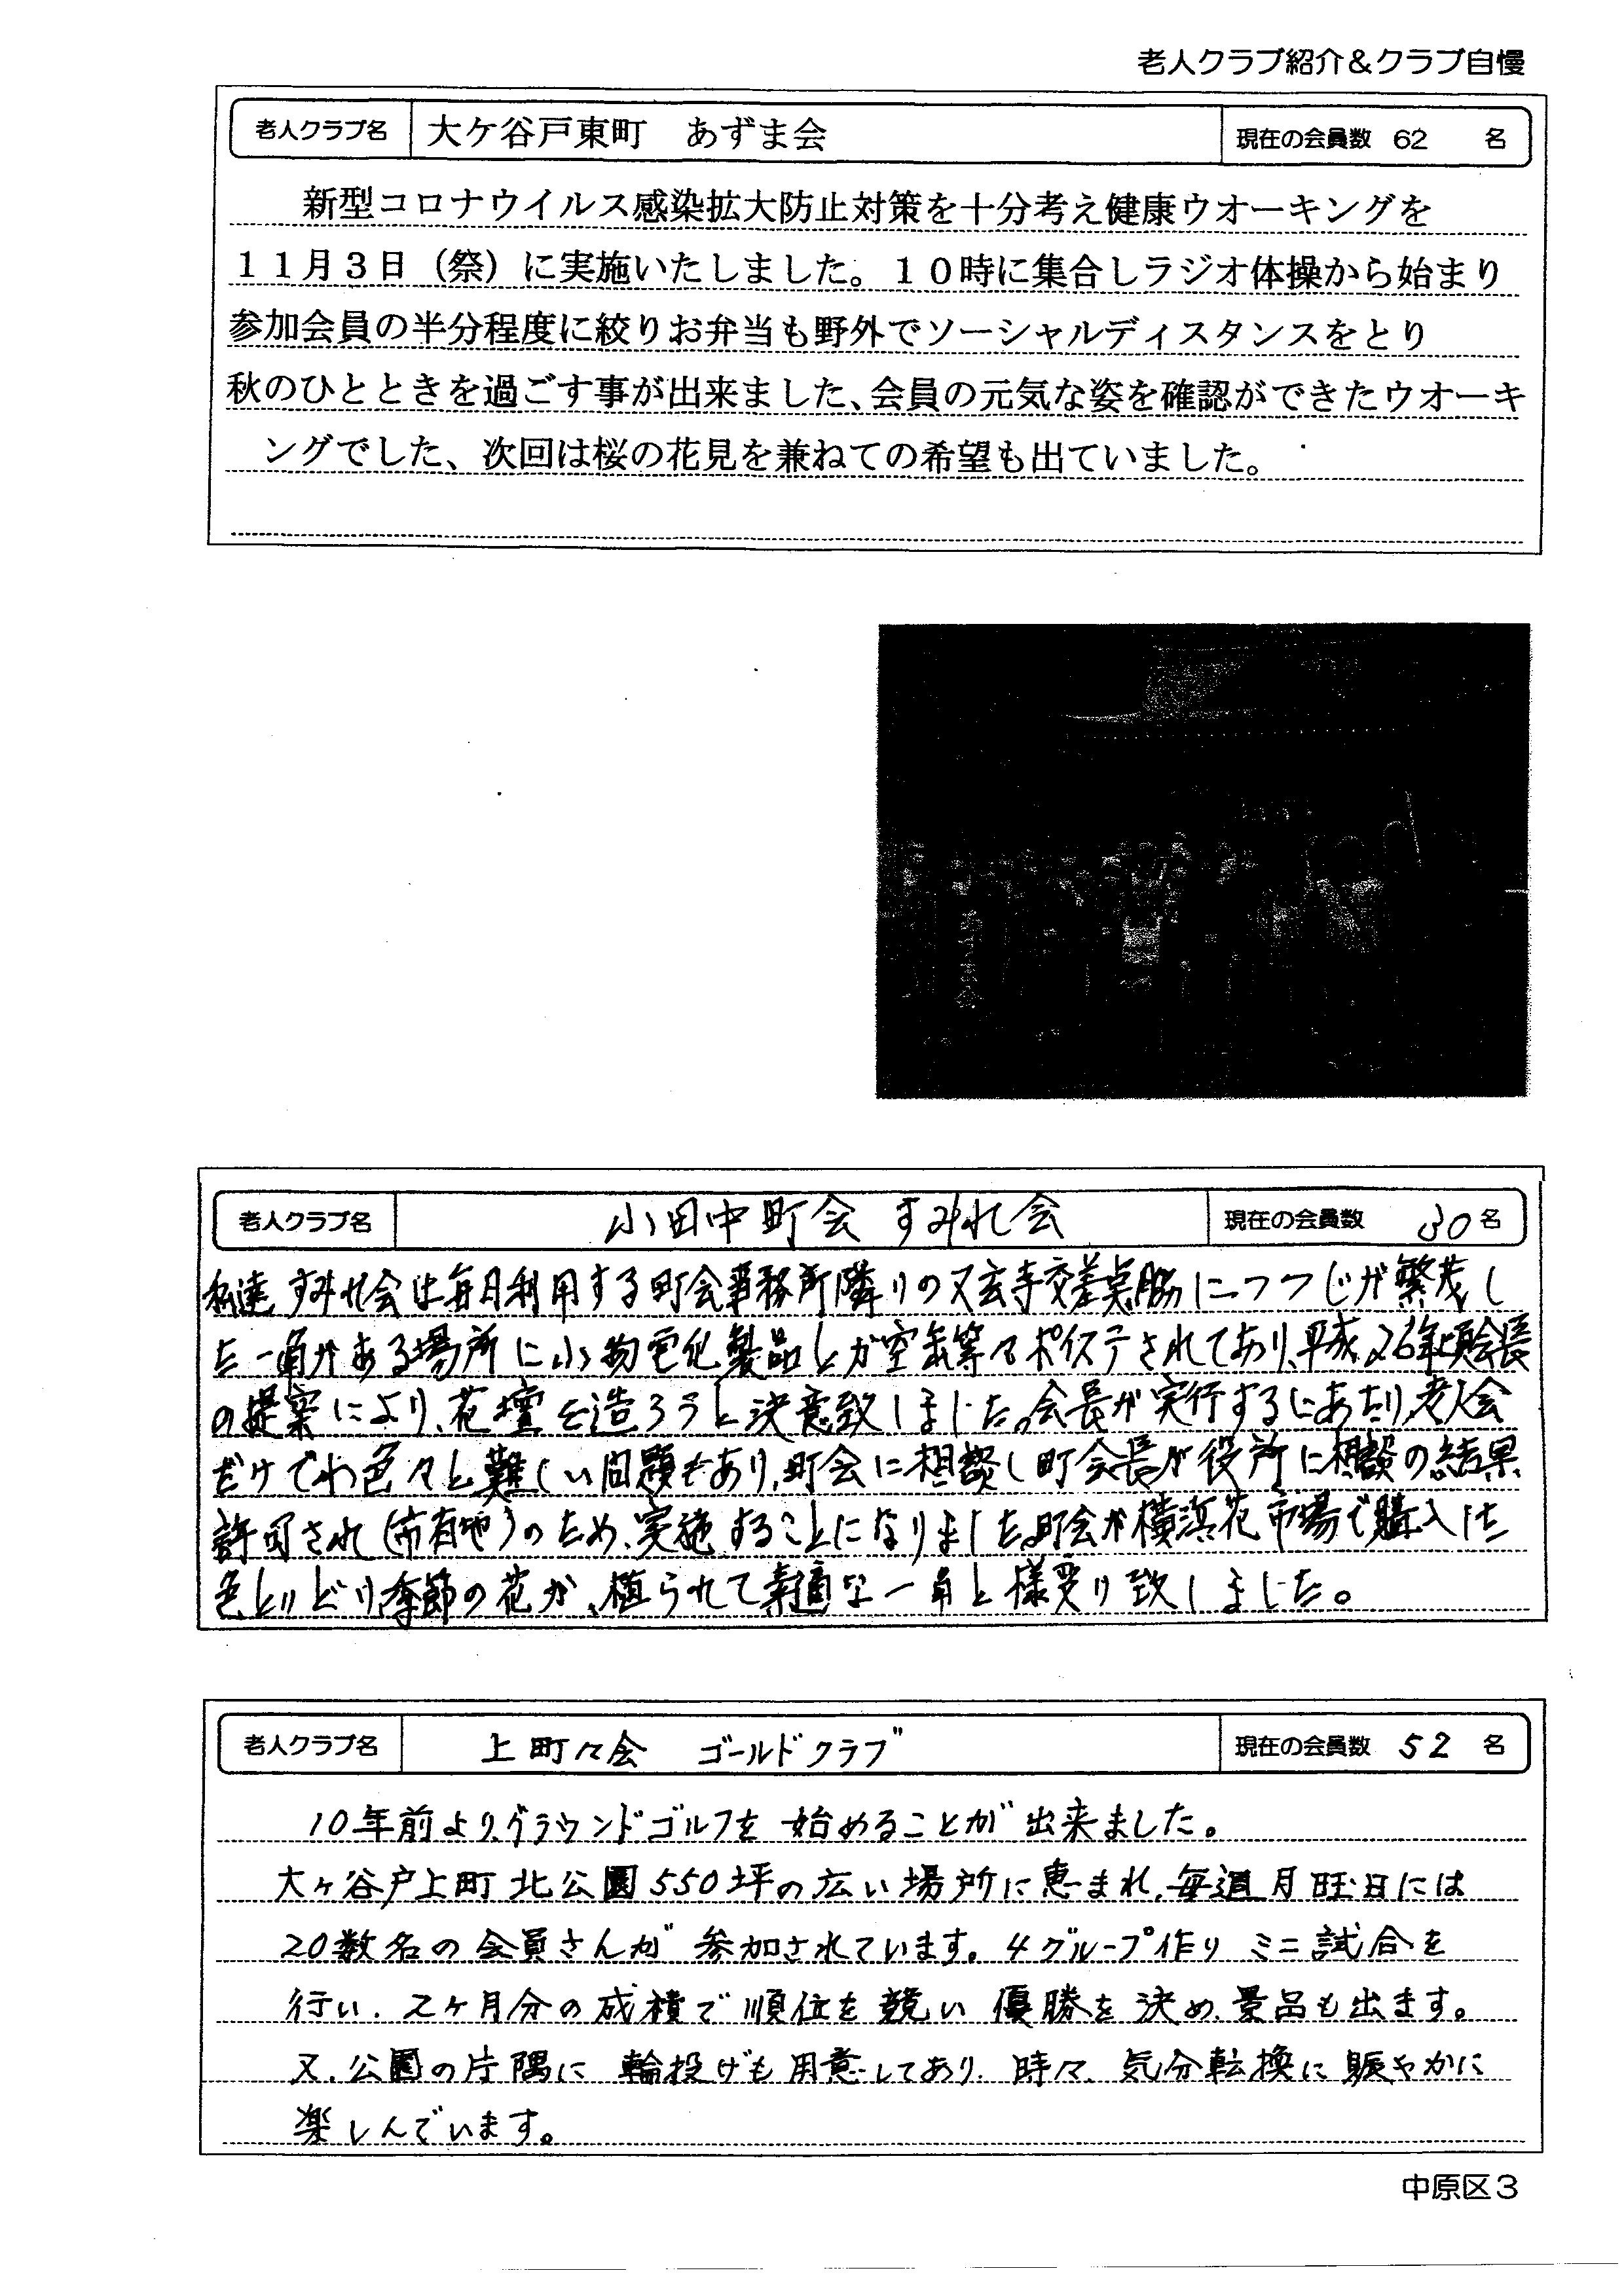 老人クラブ紹介＆クラブ自慢
老人クラブ名 大ケ谷戸東町　あずま会 現在の会員数 62 名
新型コロナウイルス感染拡大防止対策を十分考え健康ウオーキングを
１１月３日（祭）に実施いたしました。１０時に集合しラジオ体操から始まり
参加会員の半分程度に絞りお弁当も野外でソーシャルディスタンスをとり
秋のひとときを過ごす事が出来ました、会員の元気な姿を確認ができたウオーキ
ングでした、次回は桜の花見を兼ねての希望も出ていました。
老人クラブ名 小田中町会 すみれ会 現在の会員数 30 名
私達すみれ会は毎月利用する町会事務所隣りの又玄寺交差点脇につつじが繁茂し
た一角がある場所に小物電化製品とか空缶等々ポイステされてあり、平成26年頃会長
の提案により、花壇を造ろうと決意致しました。会長が実行するにあたり、老人会
だけでわ色々と難しい問題もあり、町会に相談し町会長が役所に相談の結果
許可され（市有地）のため、実施することになりました。町会が横浜花市場で購入した
色とりどり季節の花が、植られて素適な一角と様変り致しました。
老人クラブ名 上町々会　ゴールドクラブ 現在の会員数 52 名
10年前より、グラウンドゴルフを始めることが出来ました。
大ヶ谷戸上町北公園550坪の広い場所に恵まれ、毎週月曜日には
20数名の会員さんが参加されています。4グループ作り ミニ試合を
行い、2ヶ月分の成積で順位を競い優勝を決め、景品も出ます。
又、公園の片隅に輪投げも用意してあり、時々、気分転換に賑やかに
楽しんでいます。
中原区３